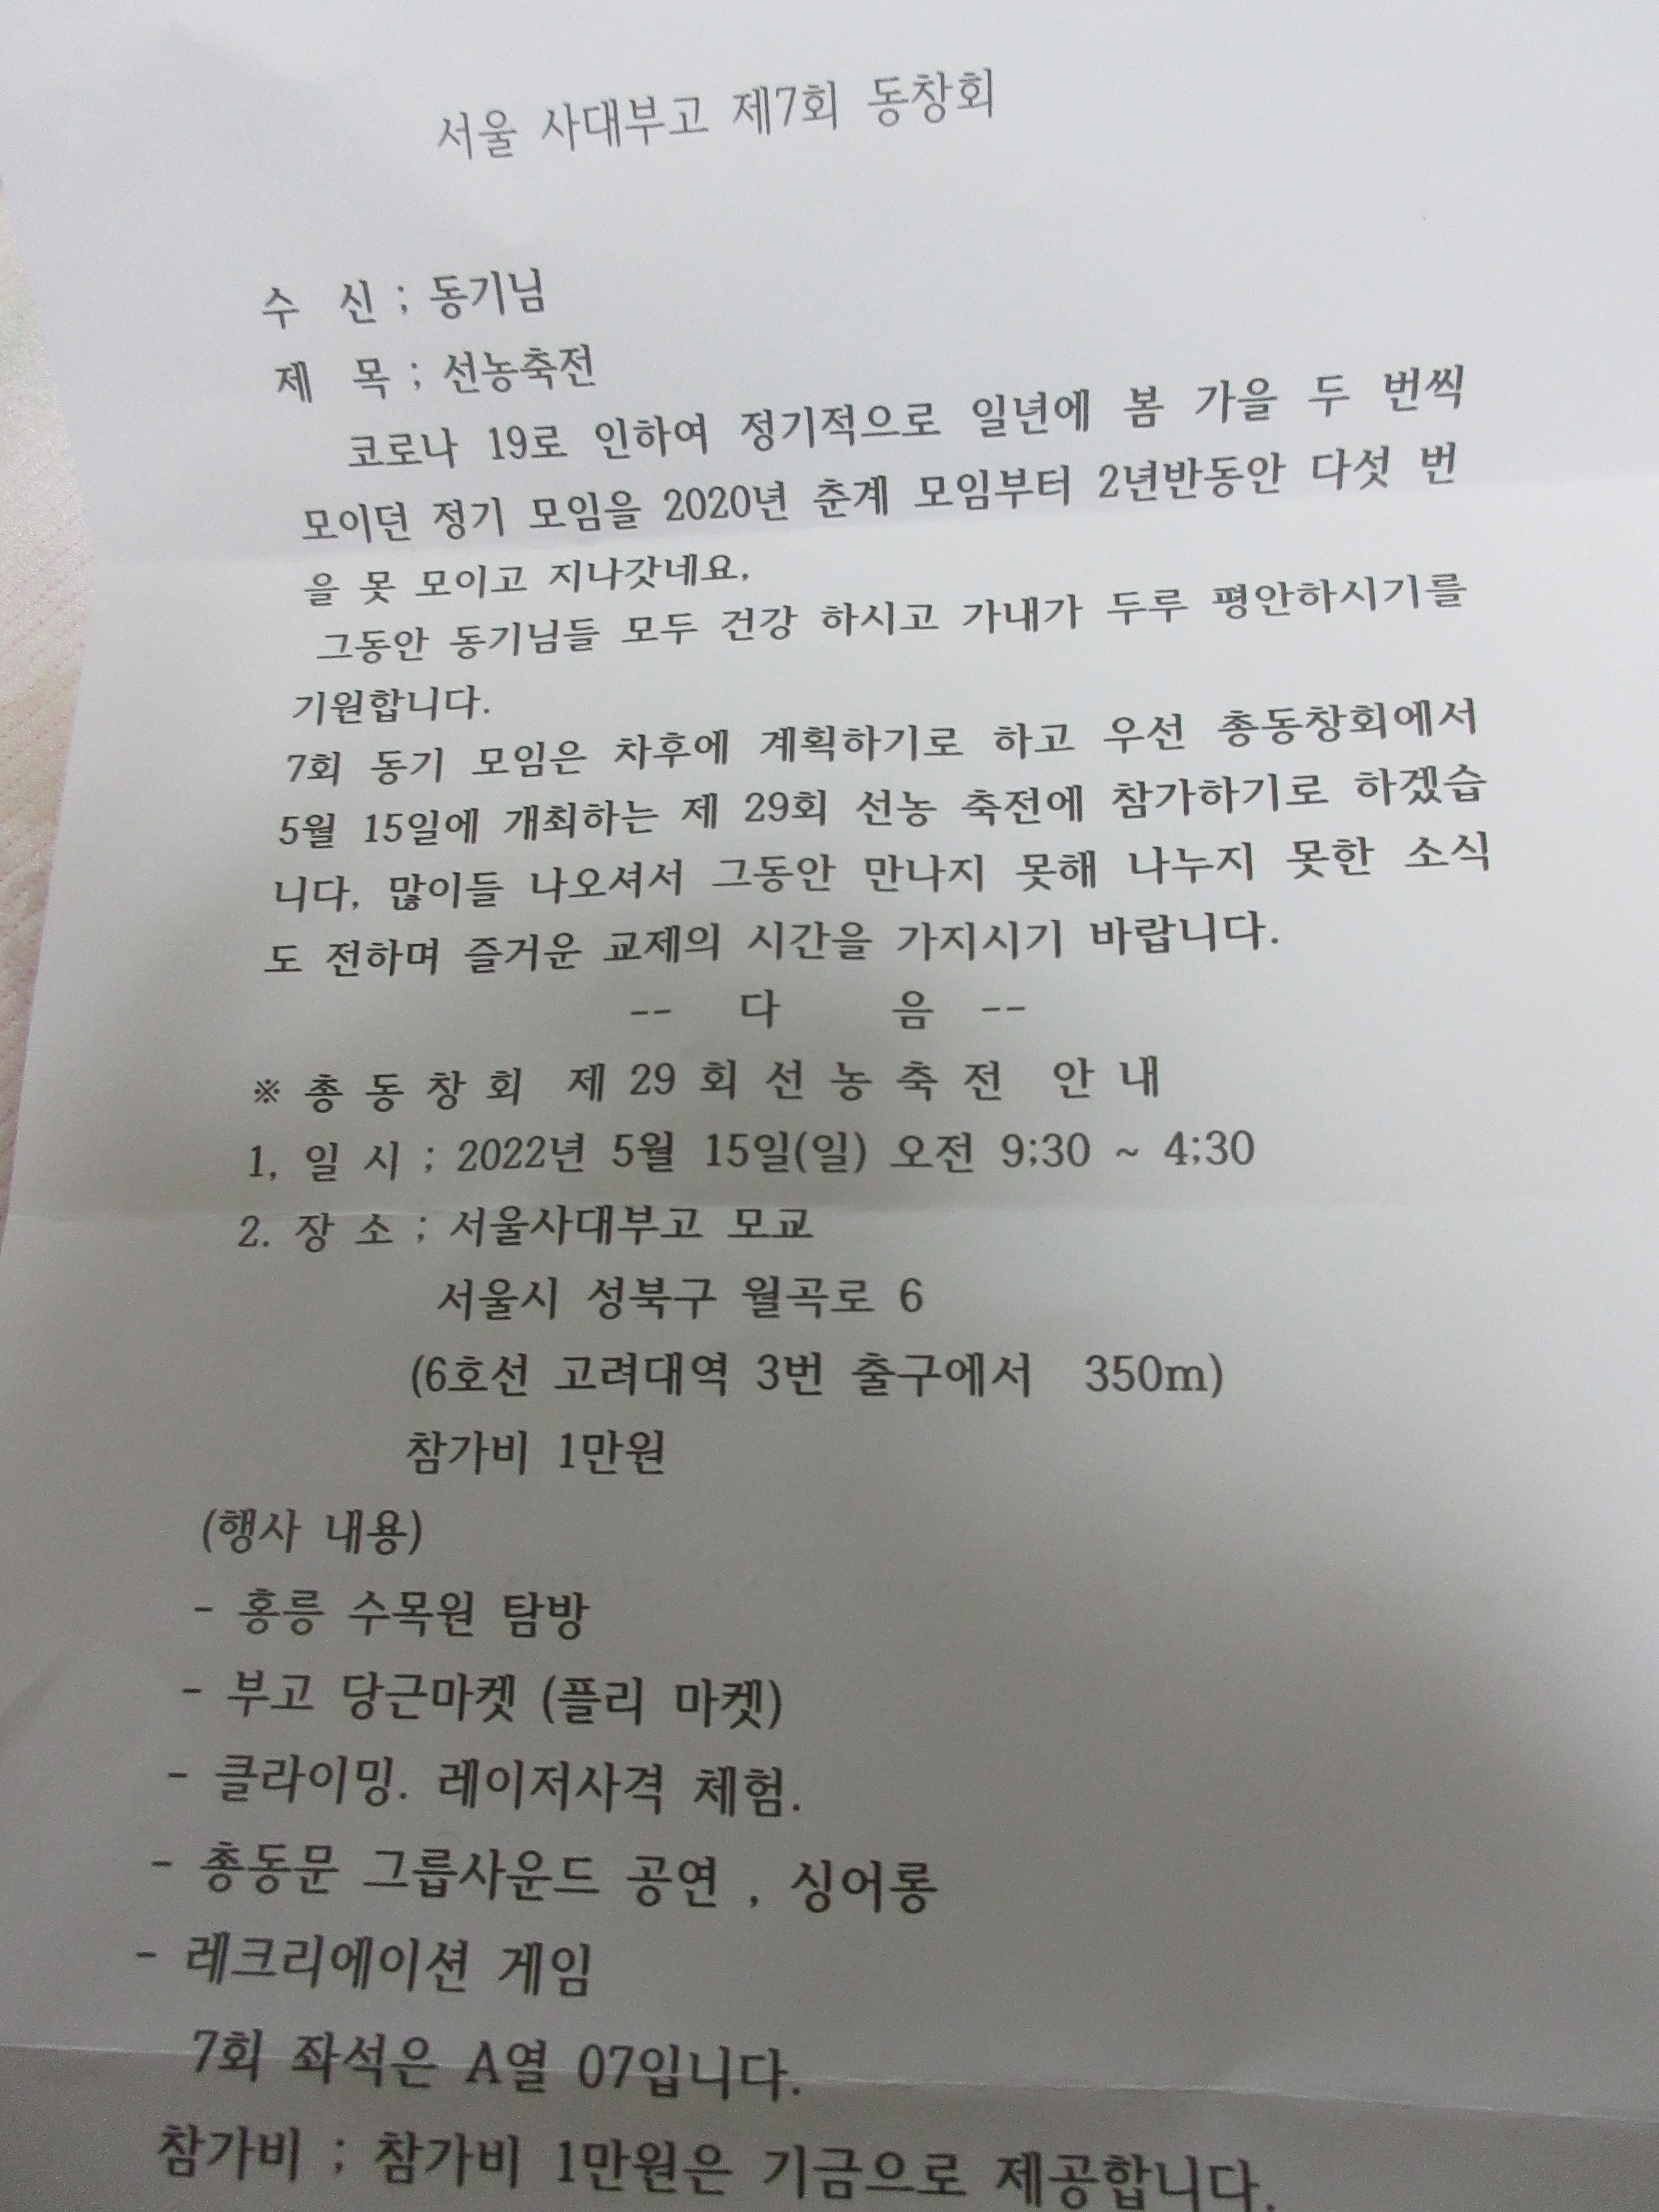 서울 사대부고 제7회 동창회
수 신 ; 동기님
제 목 ; 선농축전
코로나 19로 인하여 정기적으로 일년에 봄 가을 두 번씩
모이던 정기 모임을 2020년 춘계 모임부터 2년반동안 다섯 번
을 못 모이고 지나갓네요,
그동안 동기님들 모두 건강 하시고 가내가 두루 평안하시기를
기원합니다.
7회 동기 모임은 차후에 계획하기로 하고 우선 총동창회에서
5월 15일에 개최하는 제 29회 선농 축전에 참가하기로 하겠습
니다, 많이들 나오셔서 그동안 만나지 못해 나누지 못한 소식
도 전하며 즐거운 교제의 시간을 가지시기 바랍니다.
-- 다 음 --
※ 총 동 창 회 제 29 회 선 농 축 전 안 내
1, 일 시 ; 2022년 5월 15일(일) 오전 9;30 ~ 4;30
2. 장 소 ; 서울사대부고 모교
서울시 성북구 월곡로 6
(6호선 고려대역 3번 출구에서 350m)
참가비 1만원
(행사 내용)
- 홍릉 수목원 탐방
- 부고 당근마켓 (플리 마켓)
- 클라이밍. 레이저사격 체험.
- 총동문 그룹사운드 공연 , 싱어롱
- 레크리에이션 게임
7회 좌석은 A열 07입니다.
참가비 ; 참가비 1만원은 기금으로 제공합니다.